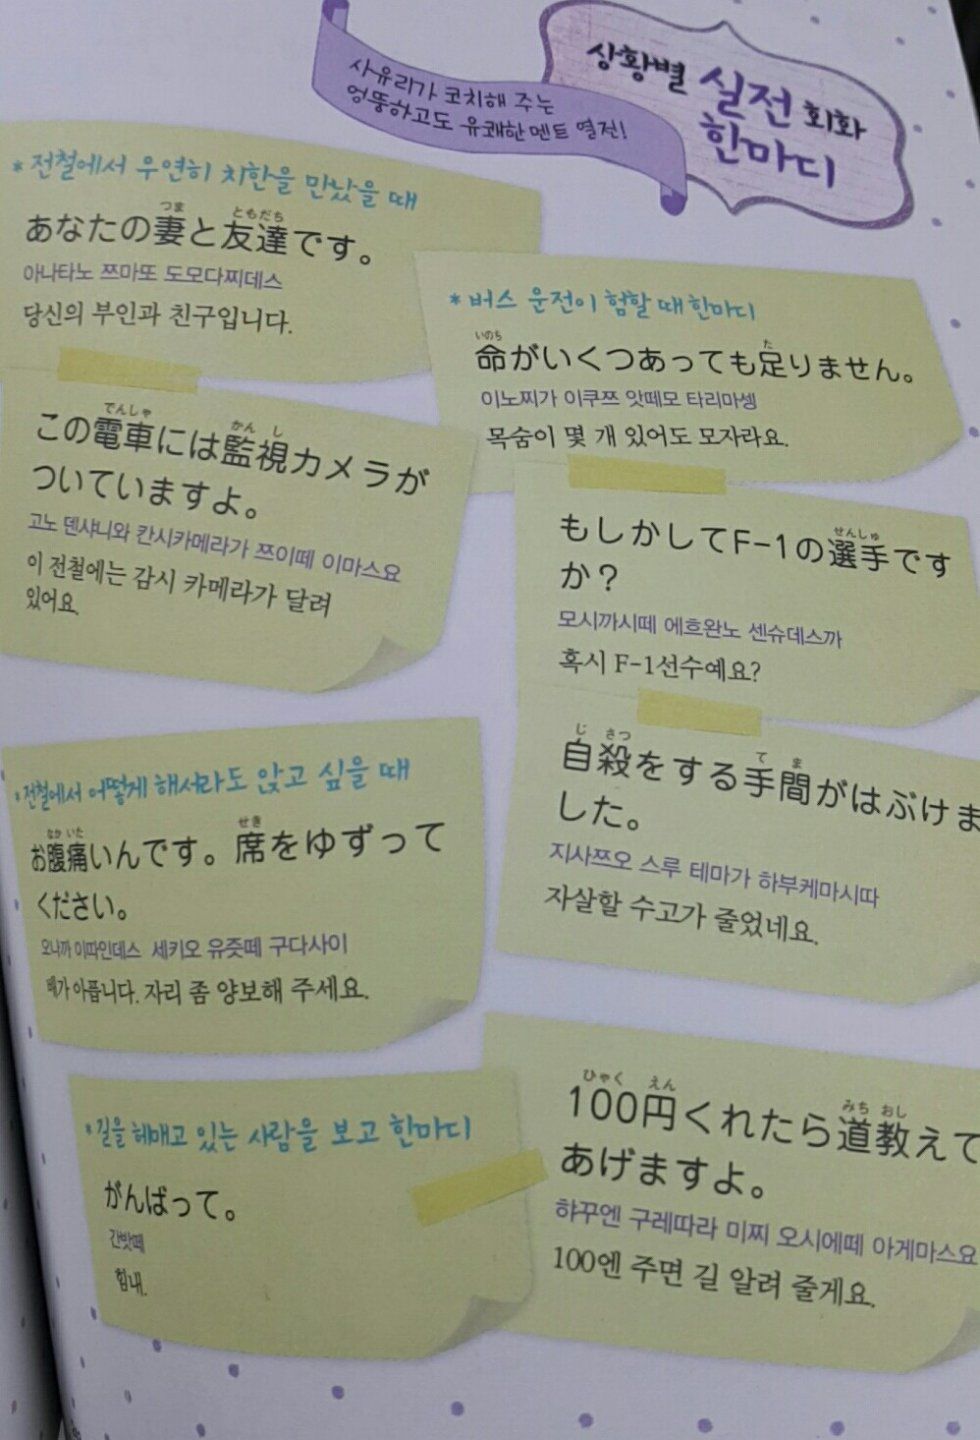 사유리가 코치해 주는
엉뚱하고도 유쾌한 멘트 열전!
상황별 실전 회화
한마디
* 전철에서 우연히 치한을 만났을 때
つま ともだち
あなたの妻と友達です。
아나타노 쯔마또 도모다찌데스
당신의 부인과 친구입니다.
でんしゃ かん し
この電車には監視カメラが
ついていますよ。
고노 덴샤니와 칸시카메라가 쯔이떼 이마스요
이 전철에는 감시 카메라가 달려
있어요.
* 버스 운전이 험할 때 한마디
いのち た
命がいくつあっても足りません。
이노찌가 이쿠쯔 앗떼모 타리마셍
목숨이 몇 개 있어도 모자라요.
せんしゅ
もしかしてF-1の選手です
か？
모시까시떼 에흐완노 센슈데스까
혹시 F-1선수예요?
じ さつ て ま
自殺をする手間がはぶけま
した。
지사쯔오 스루 테마가 하부케마시따
자살할 수고가 줄었네요.
* 전철에서 어떻게 해서라도 앉고 싶을 때
なか いた せき
お腹痛いんです。席をゆずって
ください。
오나까 이따인데스 세키오 유즛떼 구다사이
배가 아픕니다. 자리 좀 양보해 주세요.
* 길을 헤매고 있는 사람을 보고 한마디
がんばって。
간밧떼
힘내.
ひゃく えん みち おし
100円くれたら道教えて
あげますよ。
햐꾸엔 구레따라 미찌 오시에떼 아게마스요
100엔 주면 길 알려 줄게요.